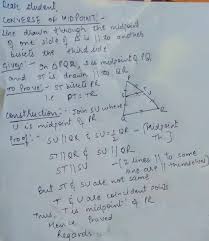 Dear student,
CONVERSE OF MIDPOINT -
Line drawn through the midpoint
of one side of Δ is || to another
bisects the third side
Given - In ΔPQR, S is midpoint of PQ
and ST is drawn || to QR
To Prove - ST bisects PR
i.e PT = TR
Construction - Join SU where
U is midpoint of PR
Proof - SU || QR & SU = 1/2 QR - (Midpoint
Th)
ST || QR & SU || QR
ST || SU - (2 lines || to same
line are || themselves)
But ST & SU are not same
T & U are coincident points
Thus, T is midpoint of PR
Hence Proved
Regards